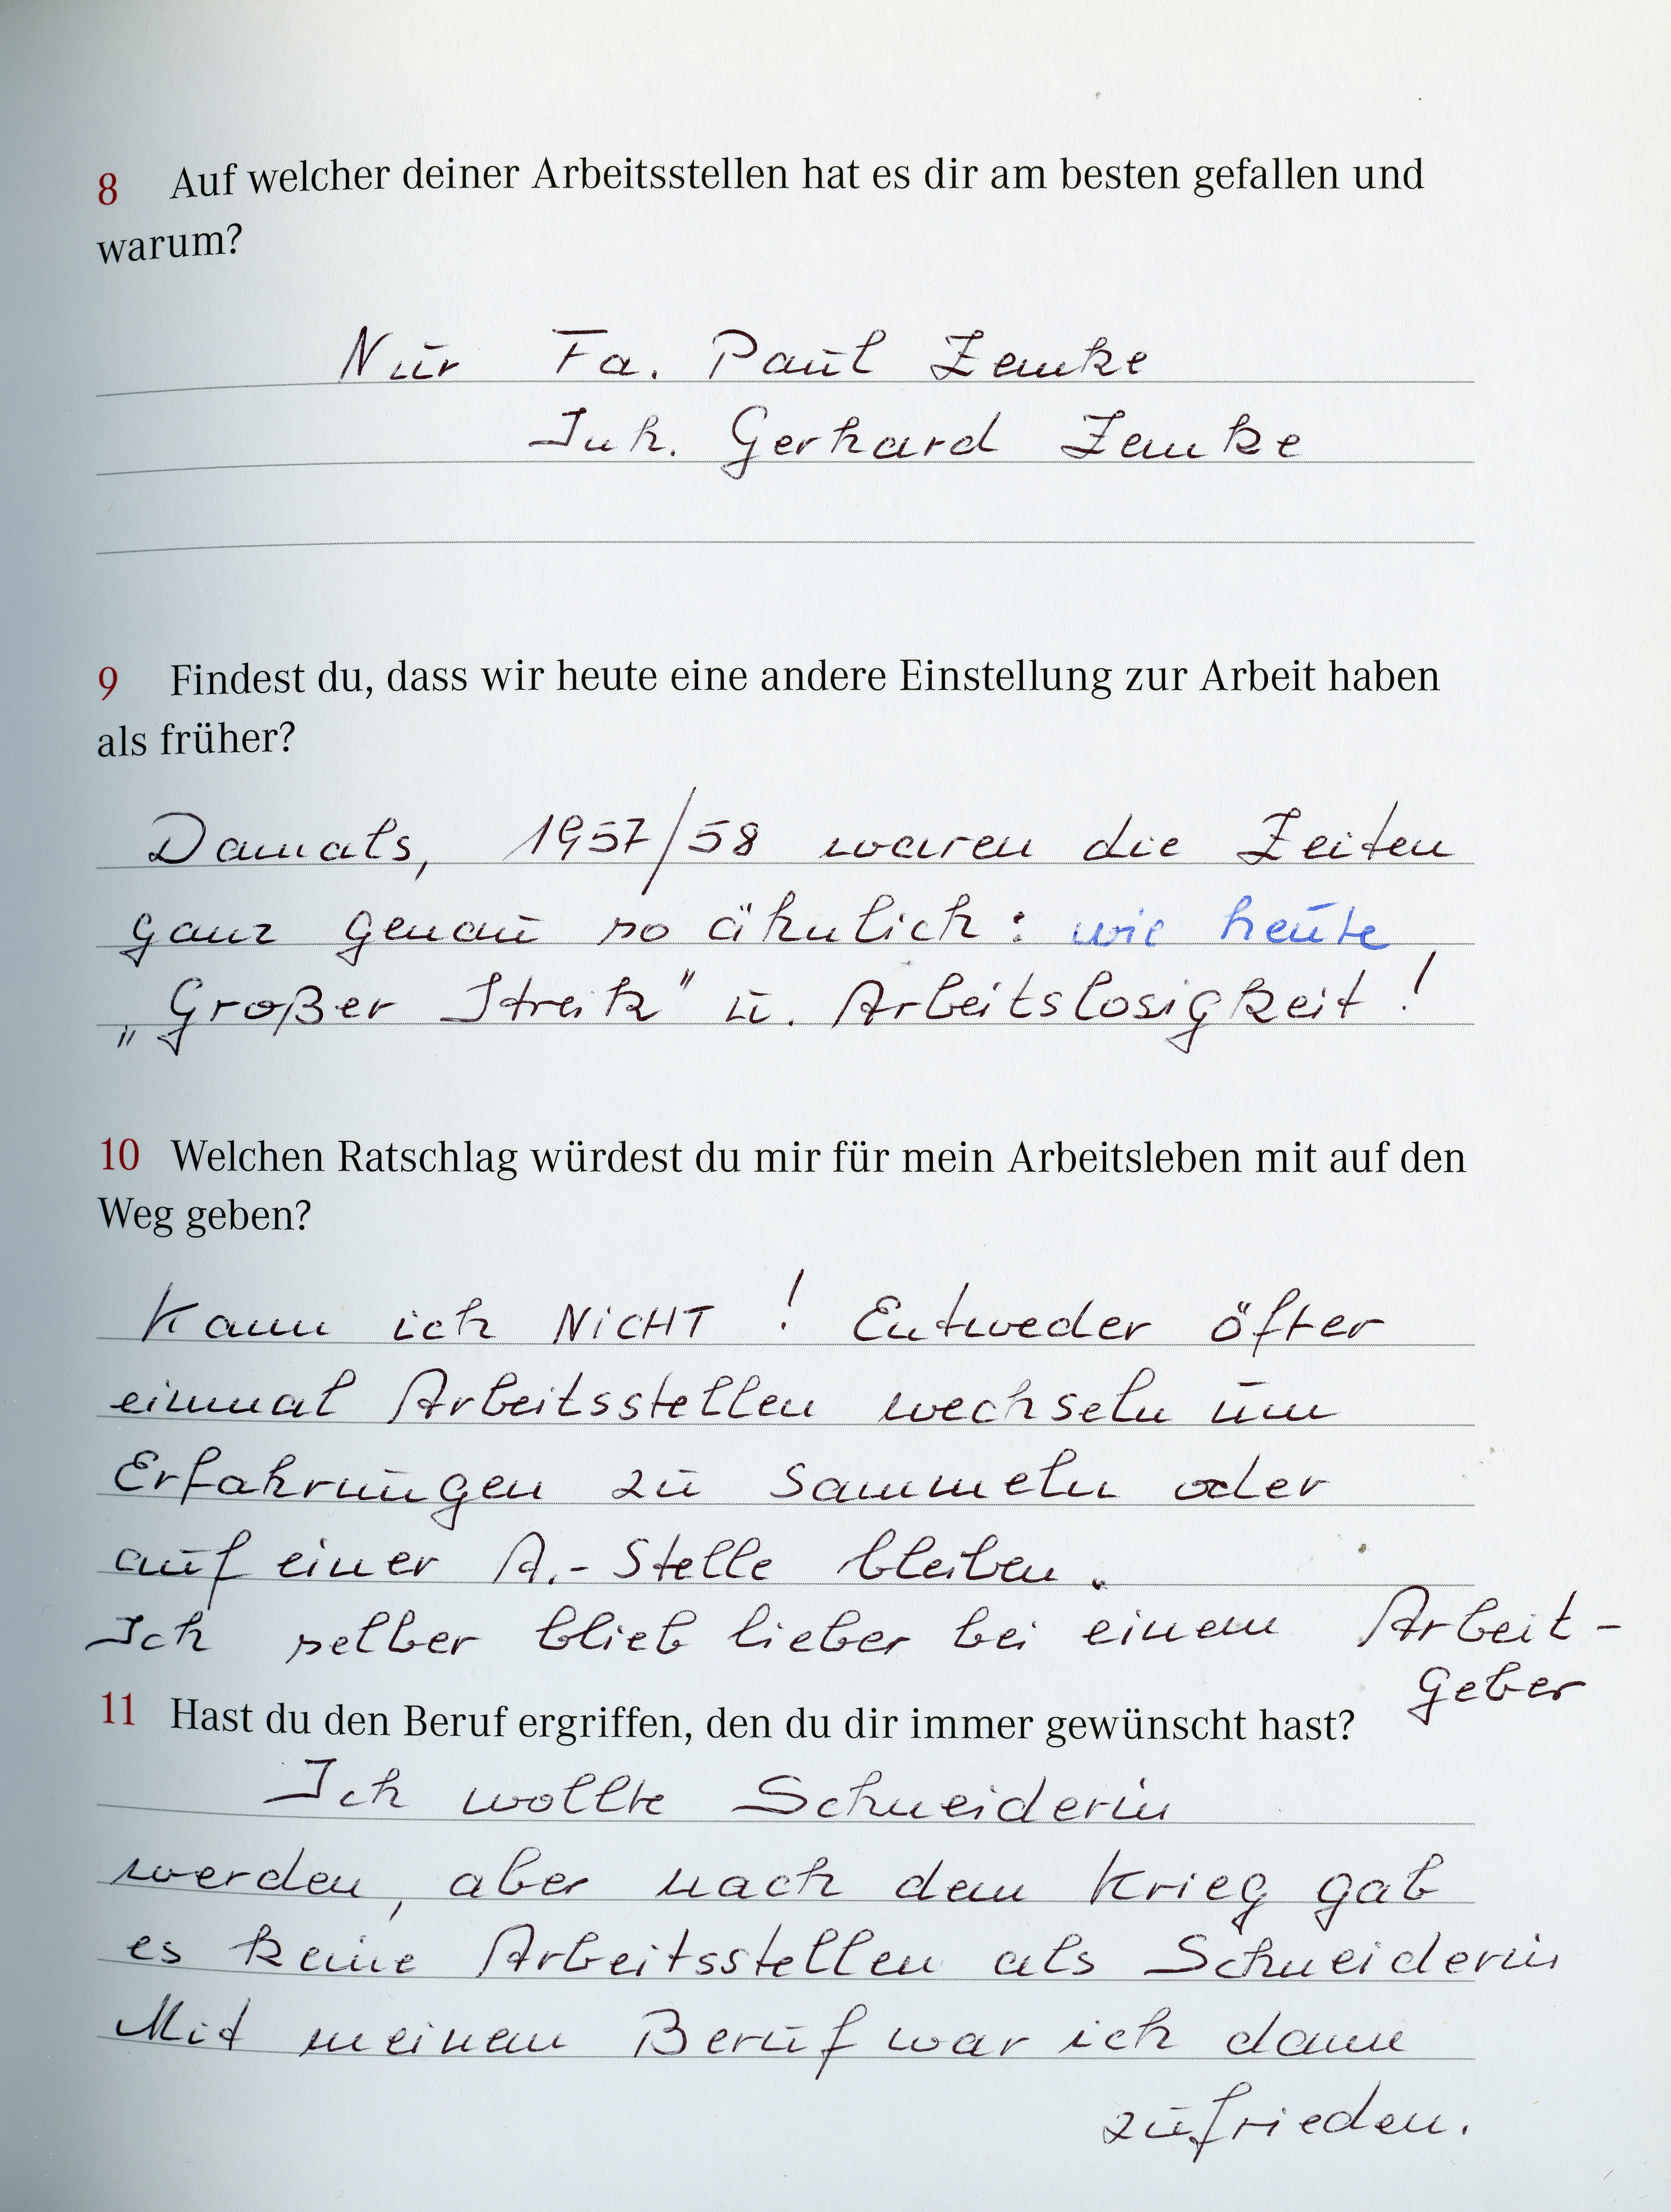 8 Auf welcher deiner Arbeitsstellen hat es dir am besten gefallen und
warum?
Nur Fa. Paul Zemke
Inh. Gerhard Zemke
9 Findest du, dass wir heute eine andere Einstellung zur Arbeit haben
als früher?
Damals, 1957/58 waren die Zeiten
ganz genau so ähnlich: wie heute
„Großer Streik" u. Arbeitslosigkeit!
10 Welchen Ratschlag würdest du mir für mein Arbeitsleben mit auf den
Weg geben?
Kann ich NiCHT! Entweder öfter
einmal Arbeitsstellen wechseln um
Erfahrungen zu sammeln oder
auf einer A.-Stelle bleiben.
Ich selber blieb lieber bei einem Arbeit-
geber
11 Hast du den Beruf ergriffen, den du dir immer gewünscht hast?
Ich wollte Schneiderin
werden, aber nach dem Krieg gab
es keine Arbeitsstellen als Schneiderin
Mit meinem Beruf war ich dann
zufrieden.